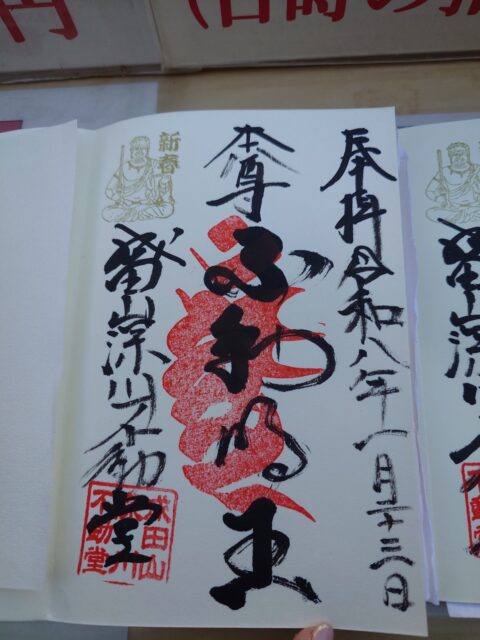 奉拝 令和八年一月二十三日
本尊
不動明王
新春
成田山深川不動堂
成田山
深川
不動堂
円